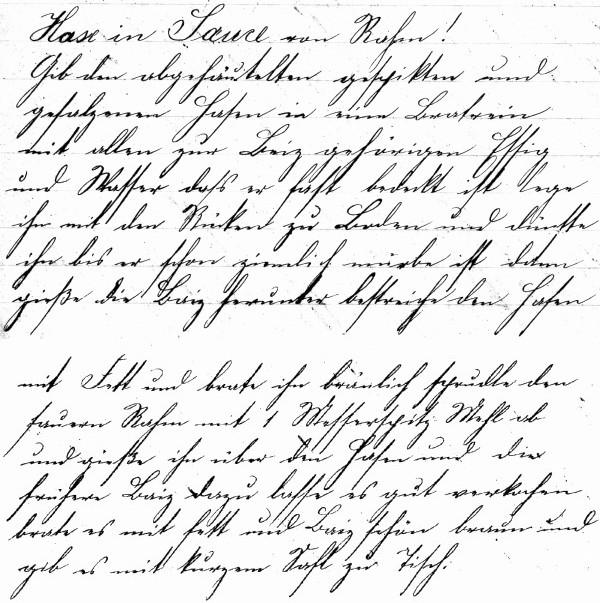 Hase in Sauce von Rahm!
Gib den abgehäutelten gespikten und
gesalzenen Hasen in eine Bratrein
mit allen zur Beiz gehörigen Essig
und Wasser dass er fast bedeckt ist lege
ihn mit den Rücken zu Boden und dünste
ihn bis er schon ziemlich mürbe ist dann
gieße die Baiz herunter bestreiche den Hasen
mit Fett und brate ihn bräunlich sprudle den
sauern Rahm mit 1 Messerspitz Mehl ab
und gieße ihn über den Hasen und die
frühere Baiz dazu lasse es gut verkochen
brate es mit Fett und Baiz schön braun und
gib es mit kurzem Saft zu Tisch.